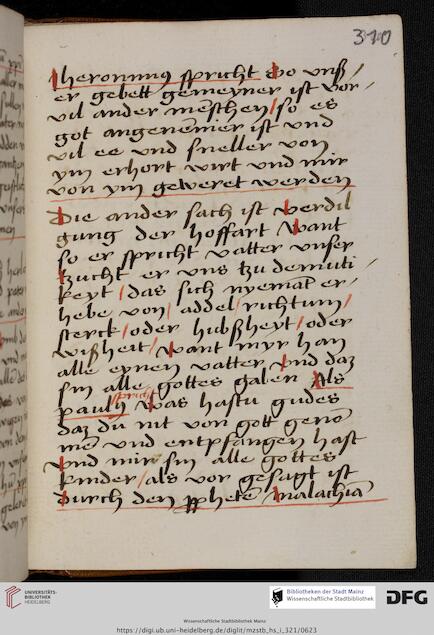 310
Iheronimus spricht so unß
er gebett gemeyner ist vor
vil ander menschen / so es
got angenemer ist und
vil ee und sneller von
ym erhort wirt und mir
von ym geweret werden
Die ander sach ist verdil
gung der hoffart Want
so er spricht vatter unser
tzucht er uns tzu demuti
keyt / das sich nyemat er
hebe von / addel / richtum /
sterck / oder hubßheyt / oder
wißheit / Want myr han
alle eynen vatter und daz
sin alle gottes gaben Als
paulus spricht Was hastu gudes
daz du nit von gott genō
mē und entpfangen hast
und mir sin alle gottes
kinder / als vor gesagt ist
durch den pphetē malachiā
UNIVERSITÄTS-
BIBLIOTHEK
HEIDELBERG
Bibliotheken der Stadt Mainz
Wissenschaftliche Stadtbibliothek
DFG
Wissenschaftliche Stadtbibliothek Mainz
https://digi.ub.uni-heidelberg.de/diglit/mzstb_hs_i_321/0623